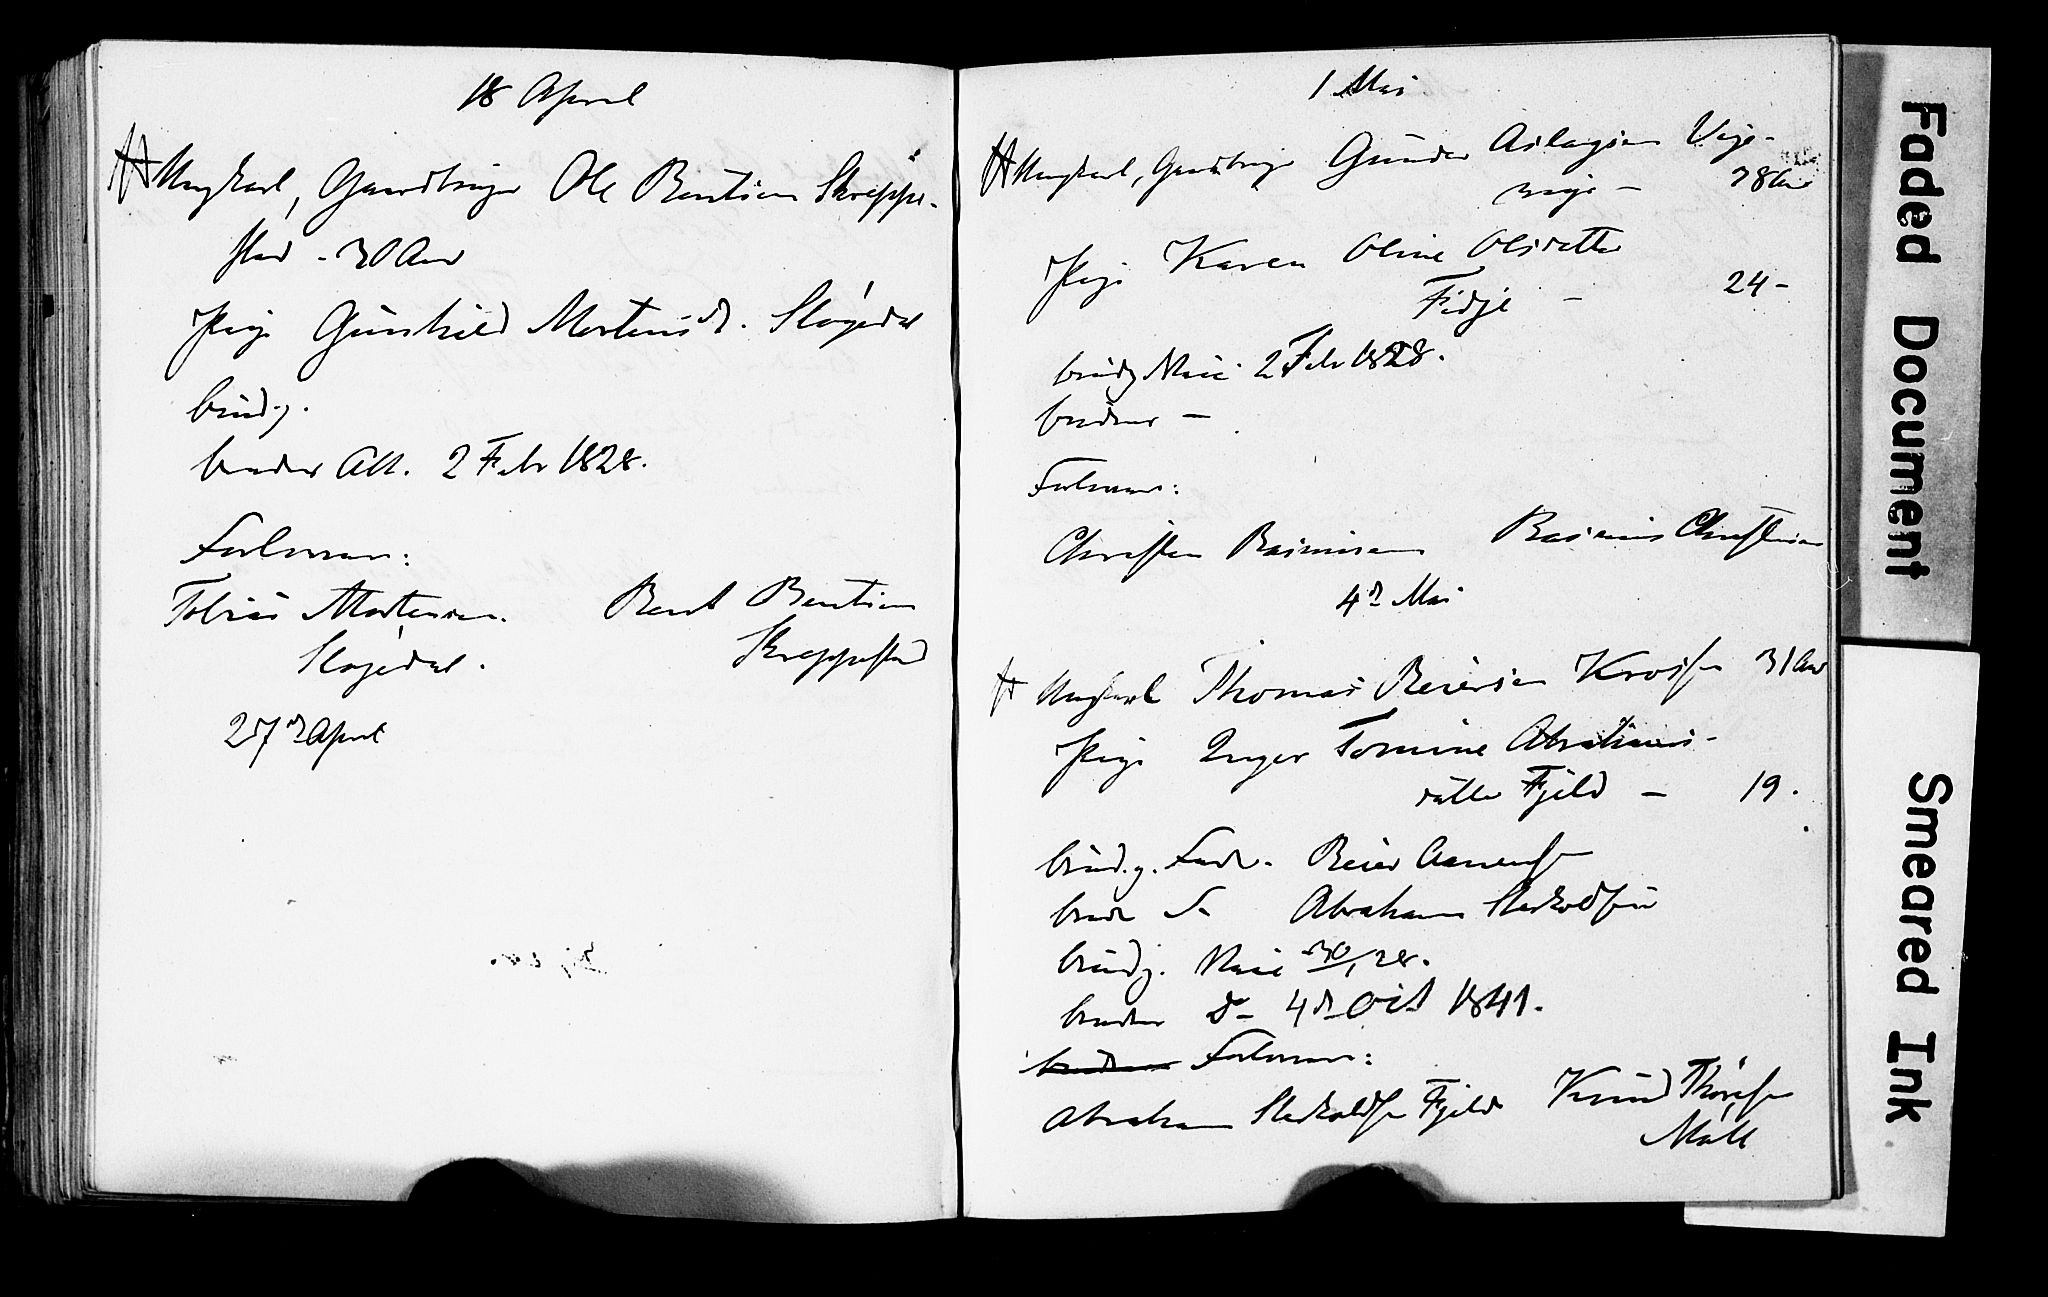 18 April
Ungkarl, Gaardbruger Ole Bentsen Skreppe-
stad - 30 Aar
Pige Gunhild Mortensd. Sløgedal
brudg.
bruden Att. 2 Febr 1828.
Forlovere:
Tobias Mortensen Bent Bentsen
Sløgedal. Skreppestad
27de April
1 Mai
Ungkarl, Gaardbruger Gunder Aslagsen Veje-
28 Aar
Pige Karen Oline Olsdatter
Fidje - 24 -
brudg Naie 2 Febr 1828.
bruden -
Forlovere:
Christen Rasmusen Rasmus Christensen
4de Mai
Ungkarl Thomas Reiersen Krossen 31 Aar
Pige Inger Tomine Abrahams-
datter Fjeld - 19.
brudg. Fader. Reier Aanensen
brudens do Abraham Sterkoldsen
brudg. Naie 30/1 28.
bruden do 4de Oct 1841.
Forlovere:
Abraham Sterkoldsen Fjeld Knud Thoresen
Moll
Faded Document
Smeared Ink